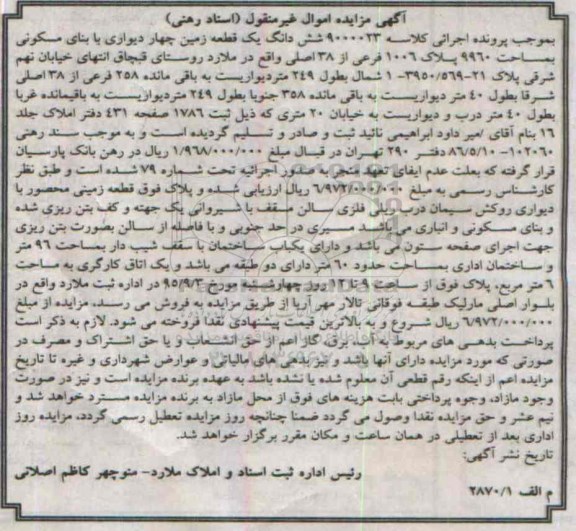 آگهی مزایده اموال غیرمنقول (اسناد رهنی)
بموجب پرونده اجرائی کلاسه ۹۰۰۰۰۲۳ شش دانگ یک قطعه زمین چهار دیواری با بنای مسکونی
بمساحت ۹۹۶۰ پلاک ۱۰۰۶ فرعی از ۳۸ اصلی واقع در ملارد روستای قبچاق انتهای خیابان نهم
شرقی پلاک ۲۱-۳۹۵۰/۵۶۹- ۱ شمال بطول ۲۴۹ متر دیواریست به باقی مانده ۲۵۸ فرعی از ۳۸ اصلی
شرقا بطول ۴۰ متر دیواریست به باقی مانده ۳۵۸ جنوبا بطول ۲۴۹ متر دیواریست به باقیمانده غربا
بطول ۴۰ متر درب و دیواریست به خیابان ۲۰ متری که ذیل ثبت ۱۷۸۶ صفحه ۴۳۱ دفتر املاک جلد
۱۶ بنام آقای امیر داود ابراهیمی تائید ثبت و صادر و تسلیم گردیده است و به موجب سند رهنی
۱۰۲۰۶۰-۸۶/۵/۱۰ دفتر ۲۹۰ تهران در قبال مبلغ ۱/۹۶۸/۰۰۰/۰۰۰ ریال در رهن بانک پارسیان
قرار گرفته که بعلت عدم ایفای تعهد منجر به صدور اجرائیه تحت شماره ۷۹ شده است و طبق نظر
کارشناس رسمی به مبلغ ۶/۹۷۲/۰۰۰/۰۰۰ ریال ارزیابی شده و پلاک فوق قطعه زمینی محصور با
دیواری روکش سیمان درب ریلی فلزی سالن مسقف با شیروانی یک جهته و کف بتن ریزی شده
و بنای مسکونی و انباری می باشد مسیری در حد جنوبی و با فاصله از سالن بصورت بتن ریزی
جهت اجرای صفحه ستون می باشد و دارای یکباب ساختمان با سقف شیب دار بمساحت ۹۶ متر
و ساختمان اداری بمساحت حدود ۶۰ متر دارای دو طبقه می باشد و یک اتاق کارگری به مساحت
۶ متر مربع. پلاک فوق از ساعت ۹ الی ۱۲ روز چهارشنبه مورخ ۹۵/۹/۳ در اداره ثبت ملارد واقع در
بلوار اصلی مارلیک طبقه فوقانی تالار مهر آریا از طریق مزایده به فروش می رسد. مزایده از مبلغ
۶/۹۷۲/۰۰۰/۰۰۰ ریال شروع و به بالاترین قیمت پیشنهادی نقدا فروخته می شود. لازم به ذکر است
پرداخت بدهی های مربوط به آب، برق، گاز اعم از حق انشعاب و یا حق اشتراک و مصرف در
صورتی که مورد مزایده دارای آنها باشد و نیز بدهی های مالیاتی و عوارض شهرداری و غیره تا تاریخ
مزایده اعم از اینکه رقم قطعی آن معلوم شده یا نشده باشد به عهده برنده مزایده است و نیز در صورت
وجود مازاد، وجوه پرداختی بابت هزینه های فوق از محل مازاد به برنده مزایده مسترد خواهد شد و
نیم عشر و حق مزایده نقدا وصول می گردد ضمنا چنانچه روز مزایده تعطیل رسمی گردد، مزایده روز
اداری بعد از تعطیلی در همان ساعت و مکان مقرر برگزار خواهد شد.
تاریخ نشر آگهی:
رئیس اداره ثبت اسناد و املاک ملارد- منوچهر کاظم اصلانی
م الف ۲۸۷۰/۱